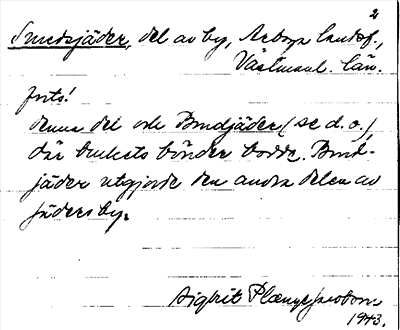 2
Smedsjäder, del av by, Arboga landsf.,
Västmanl. län.
Jrits!
denna del och Bondjäder (se d.o.),
där brukets bönder bodde. Bond-
jäder utgjorde den andra delen av
Jäders by.
Sigbrit Plænge Jacobson
1943.